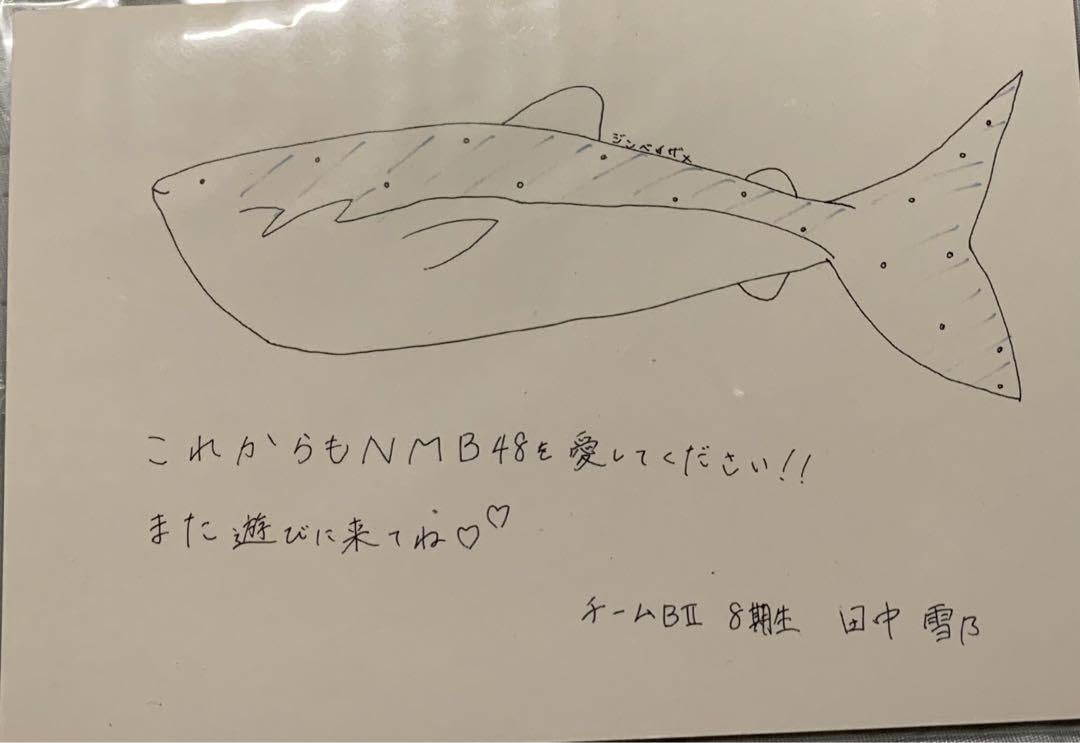 ジンベイザメ
これからもNMB48を愛してください!!
また遊びに来てね♡♡
チームBⅡ 8期生 田中 雪乃